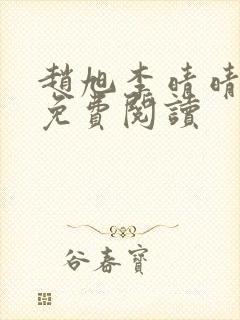 趙旭李晴晴
免費閱讀
谷春寶